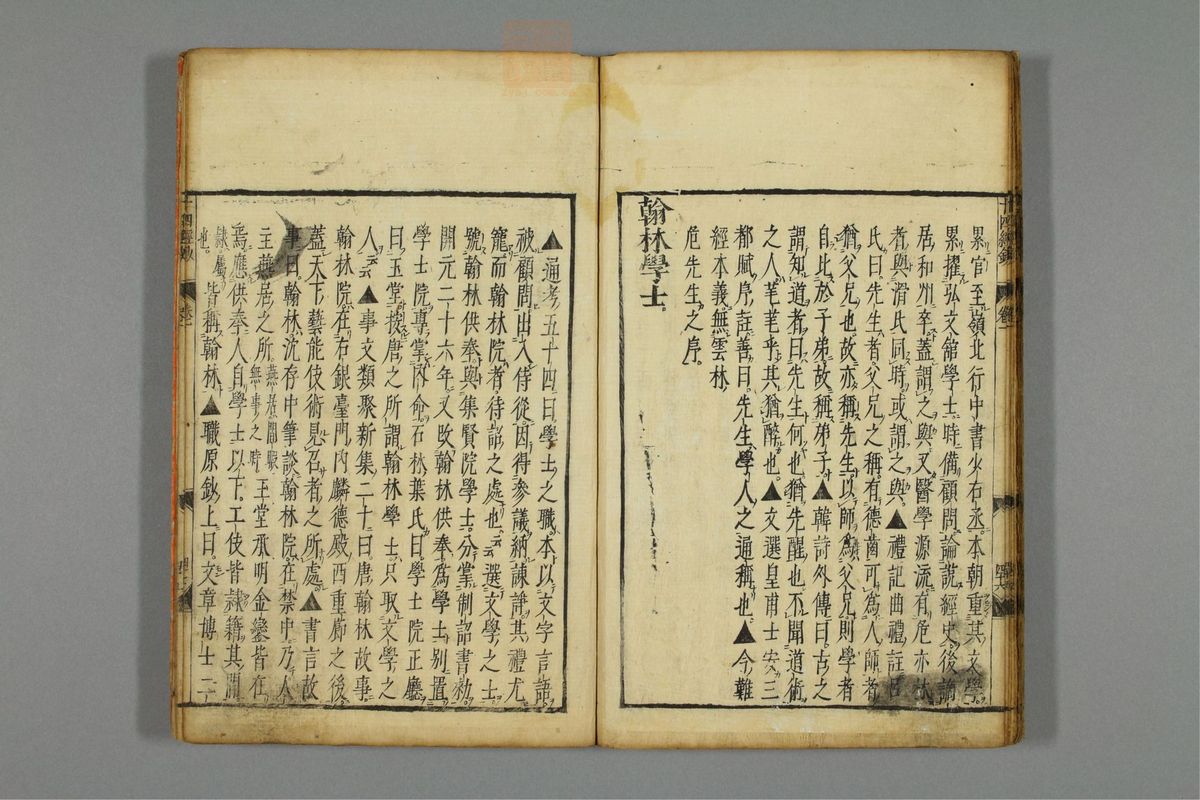 累官至嶺北行中書火右丞本朝重其文學
累擢弘文舘學士時備顧問論説經史後謫
居和州卒蓋謂之與又醫學源流有危亦林
者與滑氏同時或謂之與▲禮記曲禮註呂
氏曰先生者父兄之稱有德齒可爲人師者
猶父兄也故亦稱先生以師爲父兄則學者
自比於子弟故稱弟子▲韓詩外傳曰古之
謂知道者曰先生何也猶先醒也不聞道術
之人芼芼乎其猶醉也▲文選皇甫士安三
都賦序註善曰先生學人之通稱也▲今難
經本義無雲林
危先生之序
翰林學士
▲通考五十四曰學士之職本以文字言語
被顧問出入侍從因得參議納諫諍其禮尤
寵而翰林院者待詔之處也云云選文學之士
號翰林供奉與集賢院學士分掌制詔書勑
開元二十六年又改翰林供奉爲學士别置
學士院專掌内命石林葉氏曰學士院正廳
曰玉堂按唐之所謂翰林學士只取文學之
人云云▲事文類聚新集二十曰唐翰林故事
翰林院在右銀臺門内麟德殿西重廊之後
蓋天下藝能伎術見召者之所處▲書言故
事曰翰林沈存中筆談翰林院在禁中乃人
主燕居之所燕居間暇無事之時玉堂承明金鑾皆在
焉應供奉人自學士以下工伎皆隷籍其間
隷屬也皆稱翰林▲職原鈔上曰文章博士二
卷一